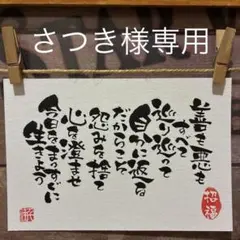 さつき様専用
善も悪も
すべて
巡り巡って
自分に返る
だからこそ
怨みを捨て
心を澄ませ
今日もまっすぐに
生きよう
招福